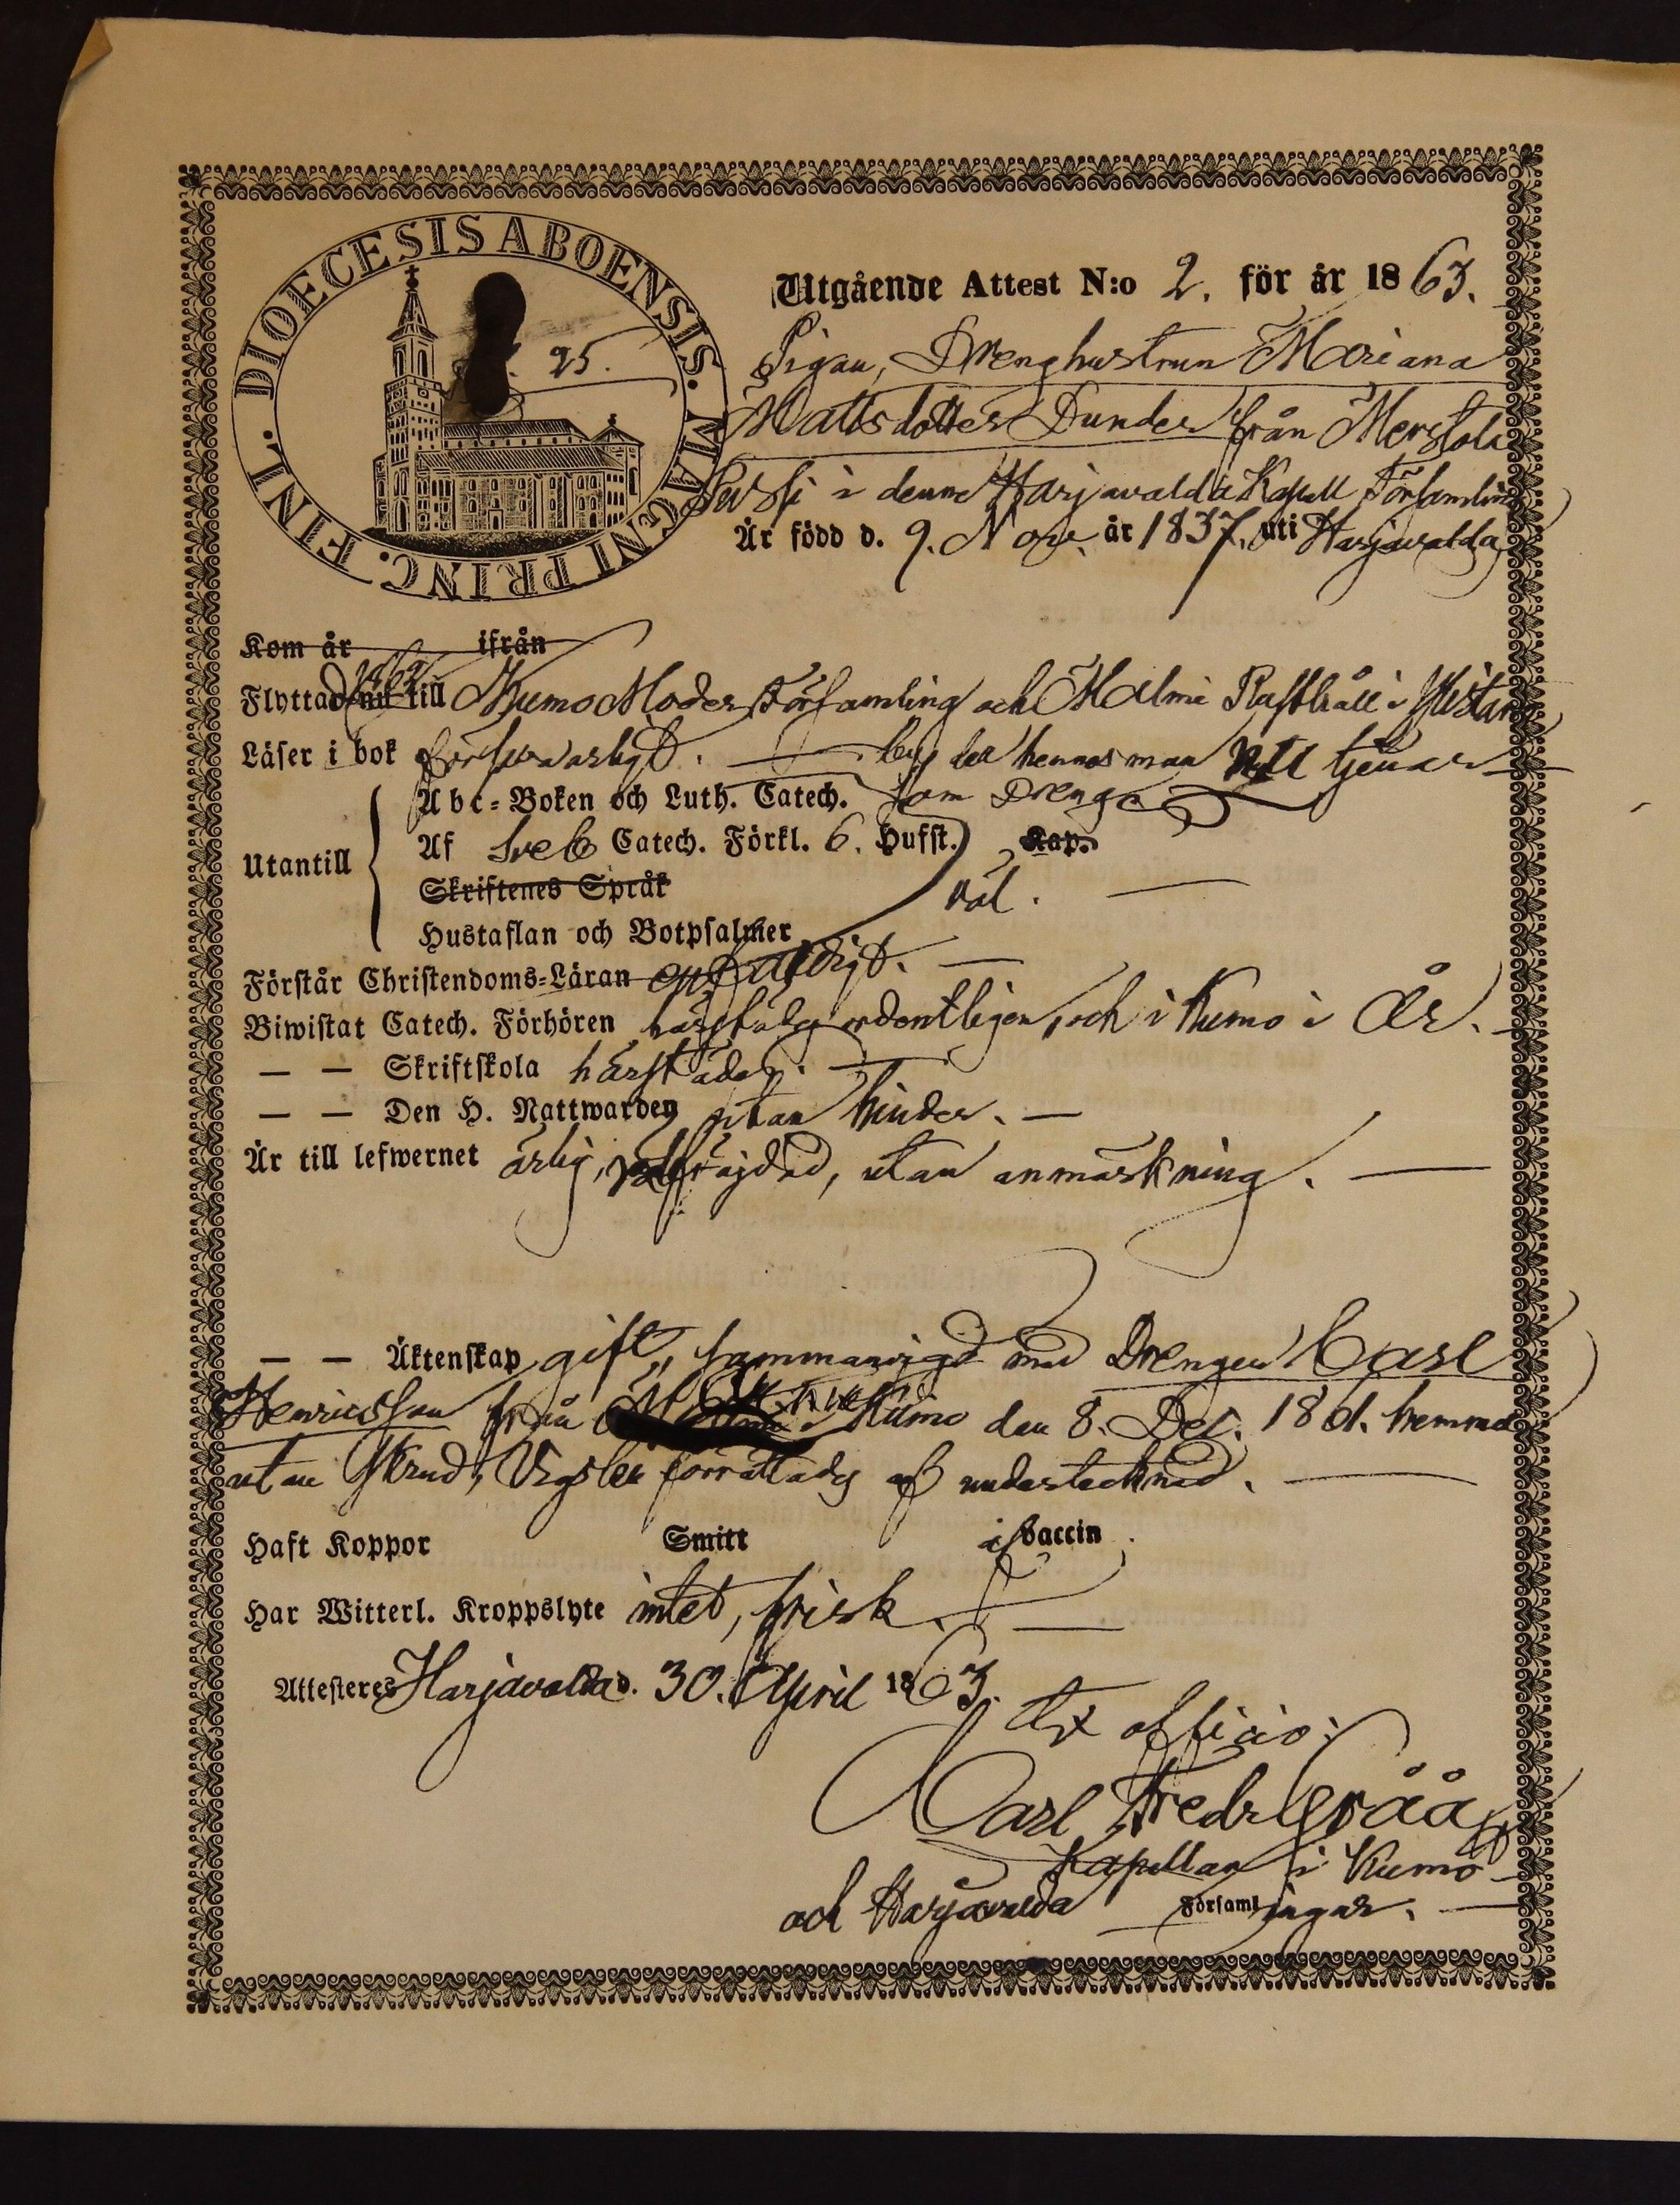 DIOECESIS ABOENSIS. MAGNI PRINC. FINL.
25.
Utgående Attest N:o 2. för år 1863.
Pigan, Drenghustrun Mariana
Mattsdotter Dunder från Merstola
i denne Harjavalda Kapell Församling
Är född d. 9. Nov. år 1837. uti Harjavalda
Kom år ifrån
Flyttade 1862 nu till Kumo Moder Församling och Malmi Rusthåll i
Läser i bok försvarligt. — by der hennes man tjenar —
Abc-Boken och Luth. Catech. som Dreng.
Utantill
Af Sveb Catech. Förkl. 6. Hufst. Kap.
Skriftenes Språk
väl. —
Hustaflan och Botpsalmer
Förstår Christendoms-Läran enfaldigt. —
Biwistat Catech. Förhören härstädes ordentligen, och i Kumo i År. —
— — Skriftskola härstädes. —
— — Den H. Nattwarden utan hinder. —
Är till lefwernet ärlig, välfräjdad, utan anmärkning. —
— — Äktenskap gift, sammanvigd med Drengen Carl
Henricsson från Kumo den 8. Dec. 1861. hemma
utan Skrud, Vigseln förrättades af undertecknad. —
Haft Koppor Smitt vaccin
Har Witterl. Kroppslyte intet, frisk. —
Attesteres Harjavalda d. 30. April 1863.
Ex officio:
Carl Fredr Gråå
Kapellan i Kumo
och Harjavalda Församlingar. —